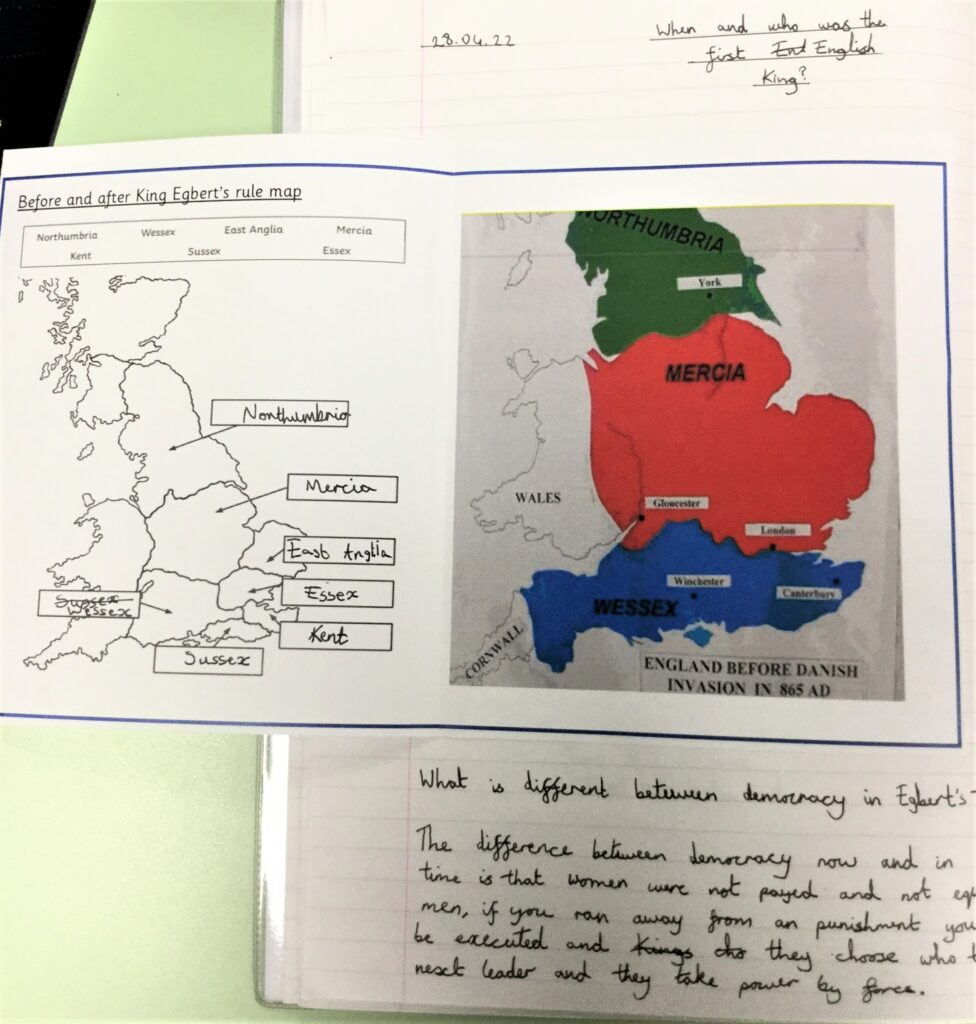 28.04.22
When and who was the
first Ent English
King?
Before and after King Egbert's rule map
Northumbria Wessex East Anglia Mercia
Kent Sussex Essex
Northumbria
Mercia
East Anglia
Essex
Sussex
Wessex
Kent
Sussex
NORTHUMBRIA
York
MERCIA
WALES
Gloucester
London
Winchester
Canterbury
WESSEX
CORNWALL
ENGLAND BEFORE DANISH
INVASION IN 865 AD
What is different between democracy in Egbert's
The difference between democracy now and in
time is that women were not payed and not equ
men, if you ran away from an punishment you
be executed and Kings cho they choose who t
next leader and they take power by force.